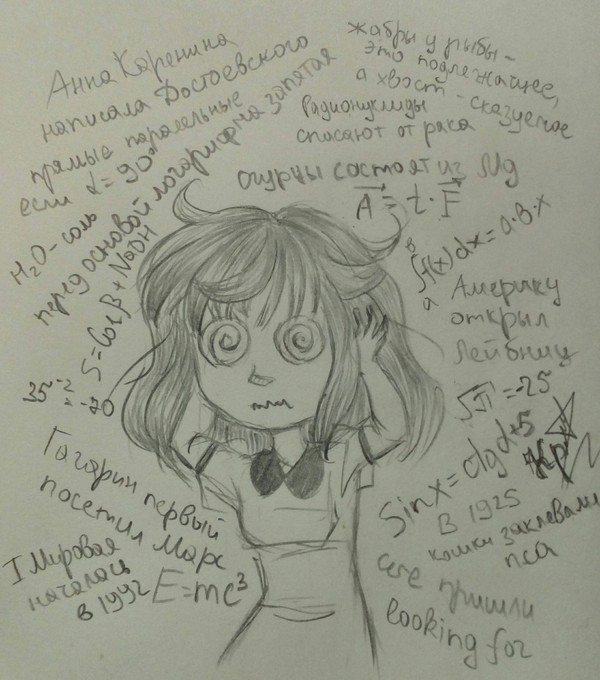 Анна Каренина
написала Достоевского
прямые паралельные
если α = 90°
перед основой логарифма запятая
H₂O - соль
S = Cosβ + NaOH
35⁻² = -70
жабры у рыбы -
это подлежащее,
а хвост - сказуемое
Радионуклиды
спасают от рака
огурцы состоят из Mg
A = t · F
∫f(x)dx = a·b·x
в
a
Америку
открыл
Лейбниц
= -25
Sinx = ctgα + 5
В 1925
кошки заклевали
пса
пришли
looking for
Гагарин первый
посетил Марс
I Мировая
началась
в 1992
E = mc³